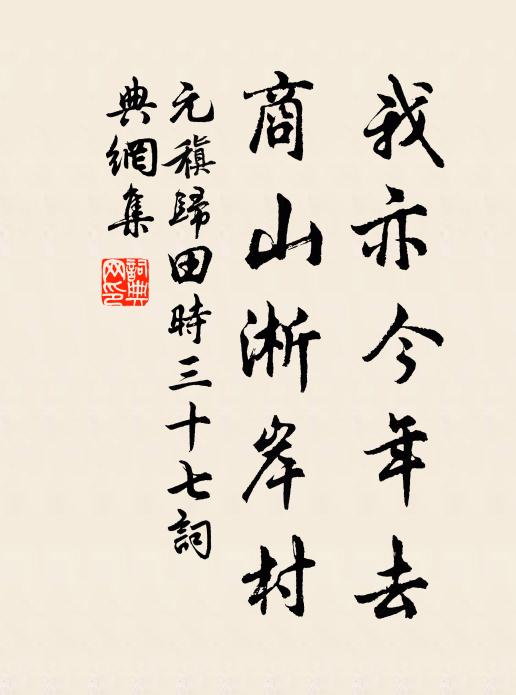 我亦今年去
商山淅岸村
元稹歸田時三十七詞
典網集
詞典
网印